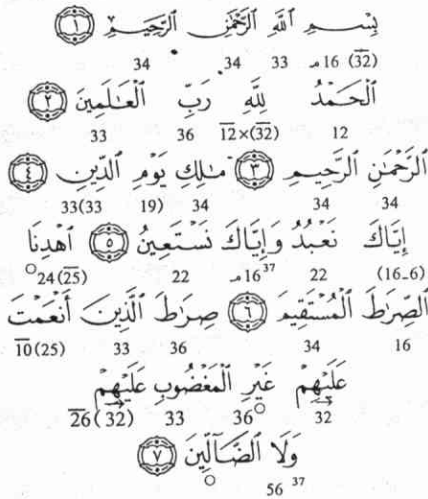 بِسْمِ ٱللَّهِ ٱلرَّحْمَٰنِ ٱلرَّحِيمِ ١
34 34 33 16مـ (32)
ٱلْحَمْدُ لِلَّهِ رَبِّ ٱلْعَٰلَمِينَ ٢
33 36 12×(32) 12
ٱلرَّحْمَٰنِ ٱلرَّحِيمِ ٣ مَٰلِكِ يَوْمِ ٱلدِّينِ ٤
33(33 19) 34 34 34
إِيَّاكَ نَعْبُدُ وَإِيَّاكَ نَسْتَعِينُ ٥ ٱهْدِنَا
24(25) 22 16مـ37 22 (16-6)
ٱلصِّرَٰطَ ٱلْمُسْتَقِيمَ ٦ صِرَٰطَ ٱلَّذِينَ أَنْعَمْتَ
10(25) 33 36 34 16
عَلَيْهِمْ غَيْرِ ٱلْمَغْضُوبِ عَلَيْهِمْ
26(32) 33 36 32
وَلَا ٱلضَّآلِّينَ ٧
56 37